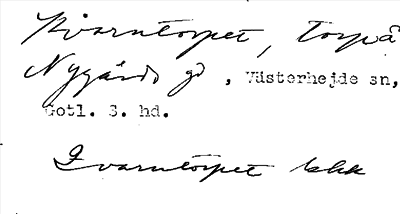 Kvarntorpet, torp på
Nygårds gd, Västerhejde sn,
Gotl. S. hd.
Kvarntorpet